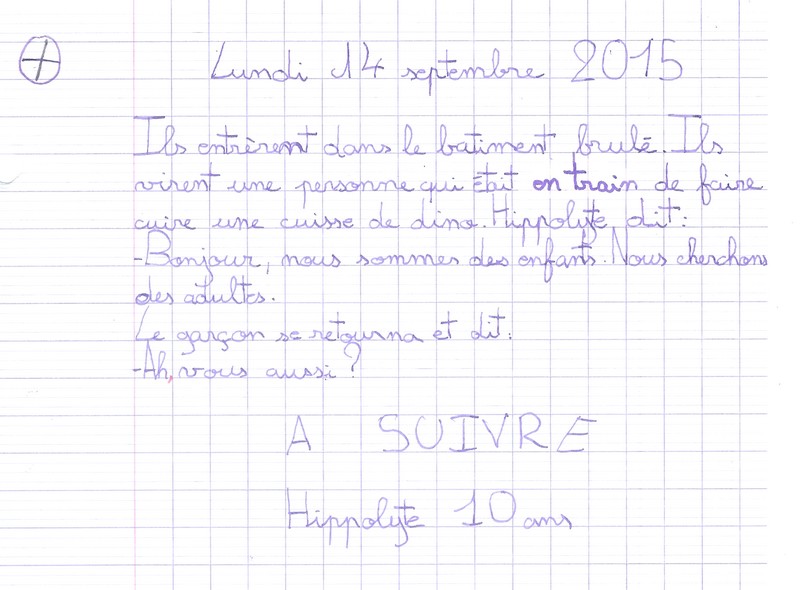 Lundi 14 septembre 2015
Ils entrèrent dans le batiment brulé. Ils
virent une personne qui était en train de faire
cuire une cuisse de dino. Hippolyte dit :
-Bonjour, nous sommes des enfants. Nous cherchons
des adultes.
Le garçon se retourna et dit :
-Ah, vous aussi ?
A SUIVRE
Hippolyte 10 ans